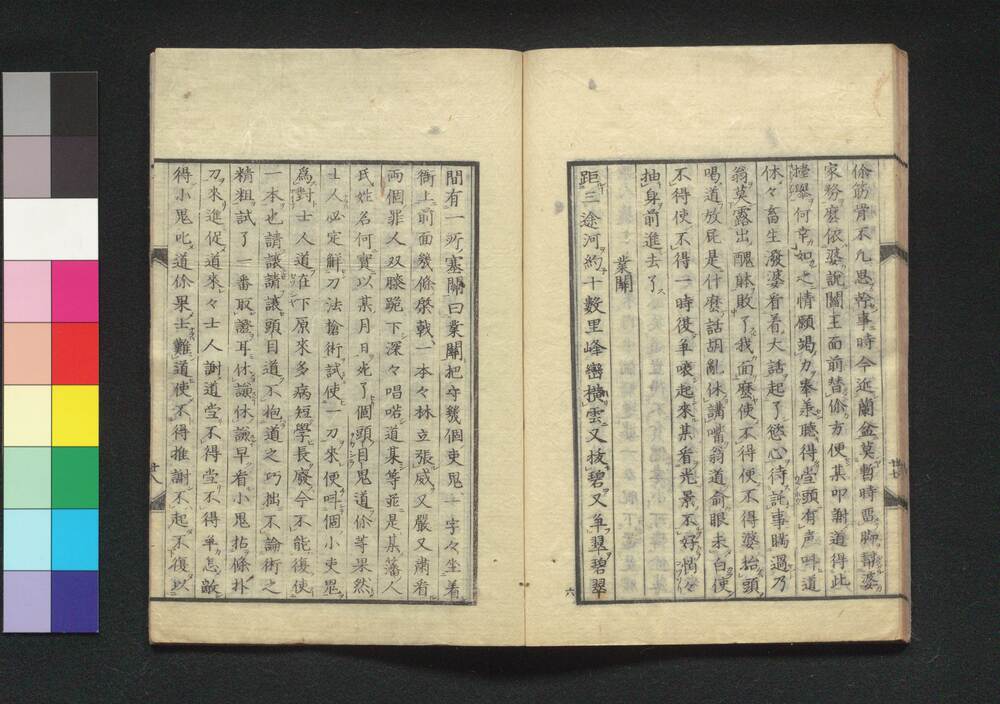 你筋骨不凡思幹事時今逝蘭盆莫暫時畱脚謝婆
家務麼儂婆說閻王面前替你方便某叩謝道得此
擡舉何幸如之情願竭力奉承聽得堂頭有声叫道
休々畜生潑婆看着大話起了慾心待託事瞞過乃
翁莫露出醜昧敗了我面麼使不得便不得婆抬頭
喝道放屁是什麼話胡亂休講嘴翁道俞眼未白使
不得使不得一時復争嚷起來某看光景不好惘々
抽身前進去了
業關
距三途河約十數里峰巒橫雲又披碧又争翠碧翠
間有一所塞關曰業關把守幾個吏鬼一字々坐着
衙上前面幾條棨戟一本々林立張威又嚴又肅看
兩個罪人双膝跪下深々唱喏道某等並是某藩人
氏姓名何實以某月日死了個頭目鬼道你等果然
士人必定鮮刀法搶術試使一刀來便呌個小吏鬼
爲對士人道在下原來多病短學長廢今不能復使
一本也請讓請讓頭目道不抱道之巧拙不論術之
精粗試了一番取證耳休讓休讓早看小鬼拈條朴
刀來進促道來々士人謝道當不得當不得単怎敵
得小鬼叱道你果士難道使不得推謝不起不復以
廿七
廿八
六